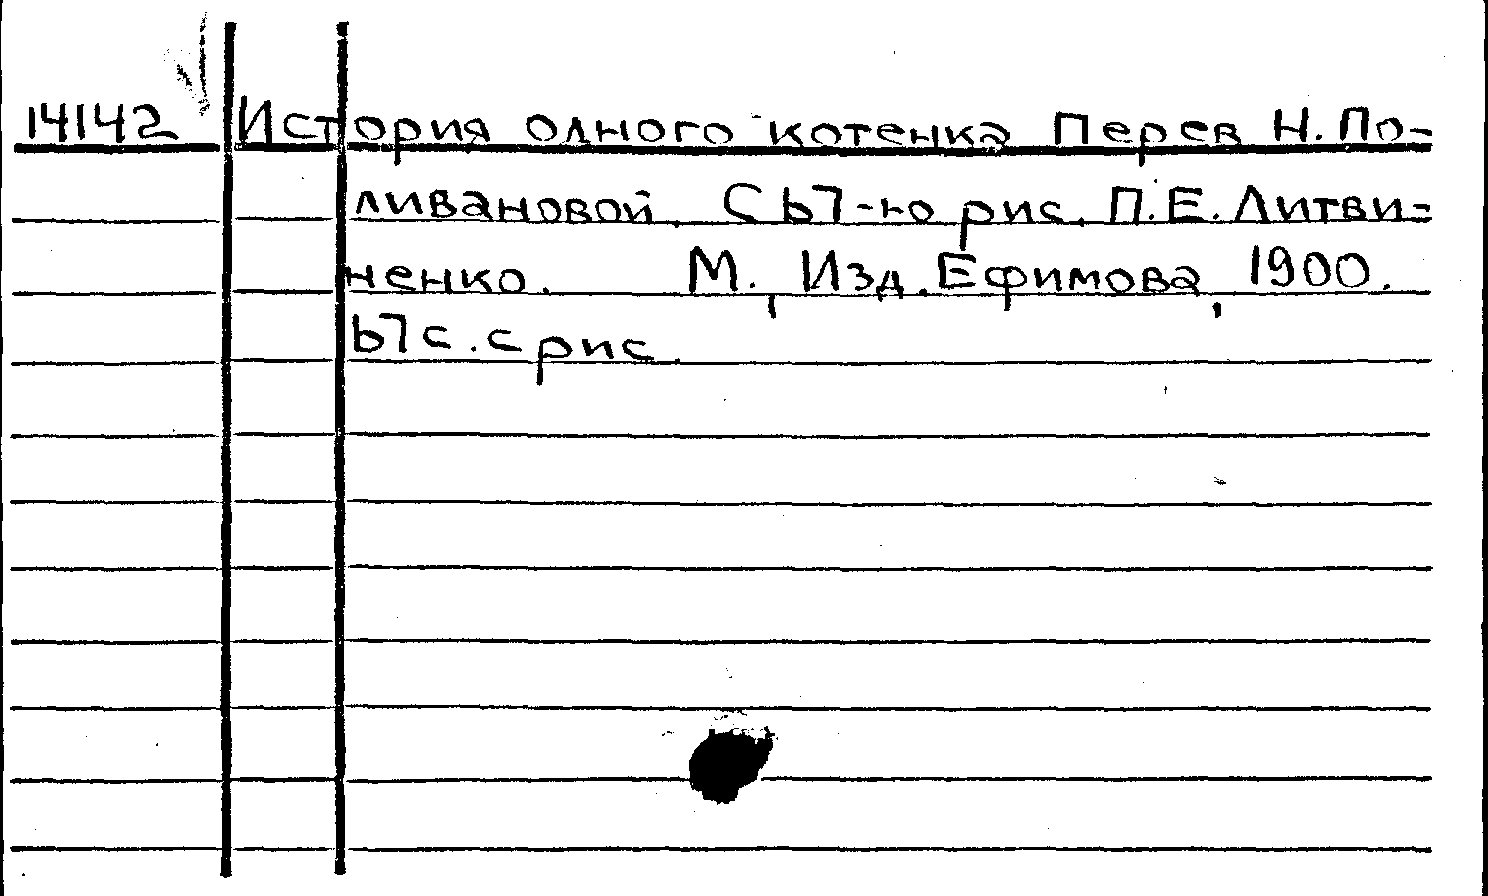 14142 История одного котенка Перев Н. По-
ливановой. С 67-ю рис. П.Е. Литви-
ненко. М., Изд. Ефимова, 1900.
67 с. с рис.